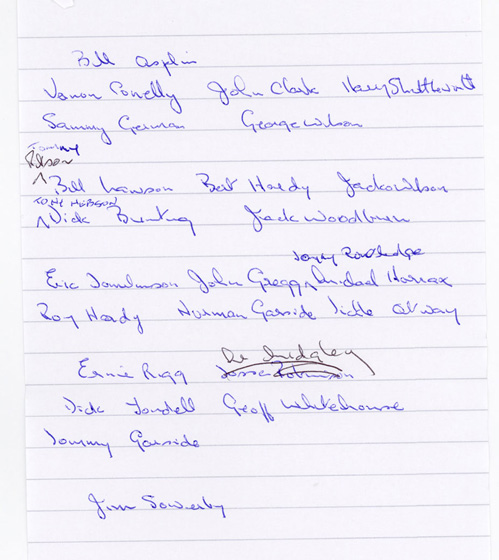 Bill Asplin
Vernon Powelly John Clark Harry Shuttleworth
Sammy German George Wilson
Tommy
Pilson
Bill Lawson Bert Hardy Jack Wilson
Tony Hobson
Dick Bunting Jack Woodburn
Joey Routledge
Eric Tomlinson John Gregg Michael Horrax
Roy Hardy Norman Garside Otway
De Midgley
Ernie Rigg Jesse Robinson
Dick Geoff Whitehouse
Tommy Garside
Jim Sowerby